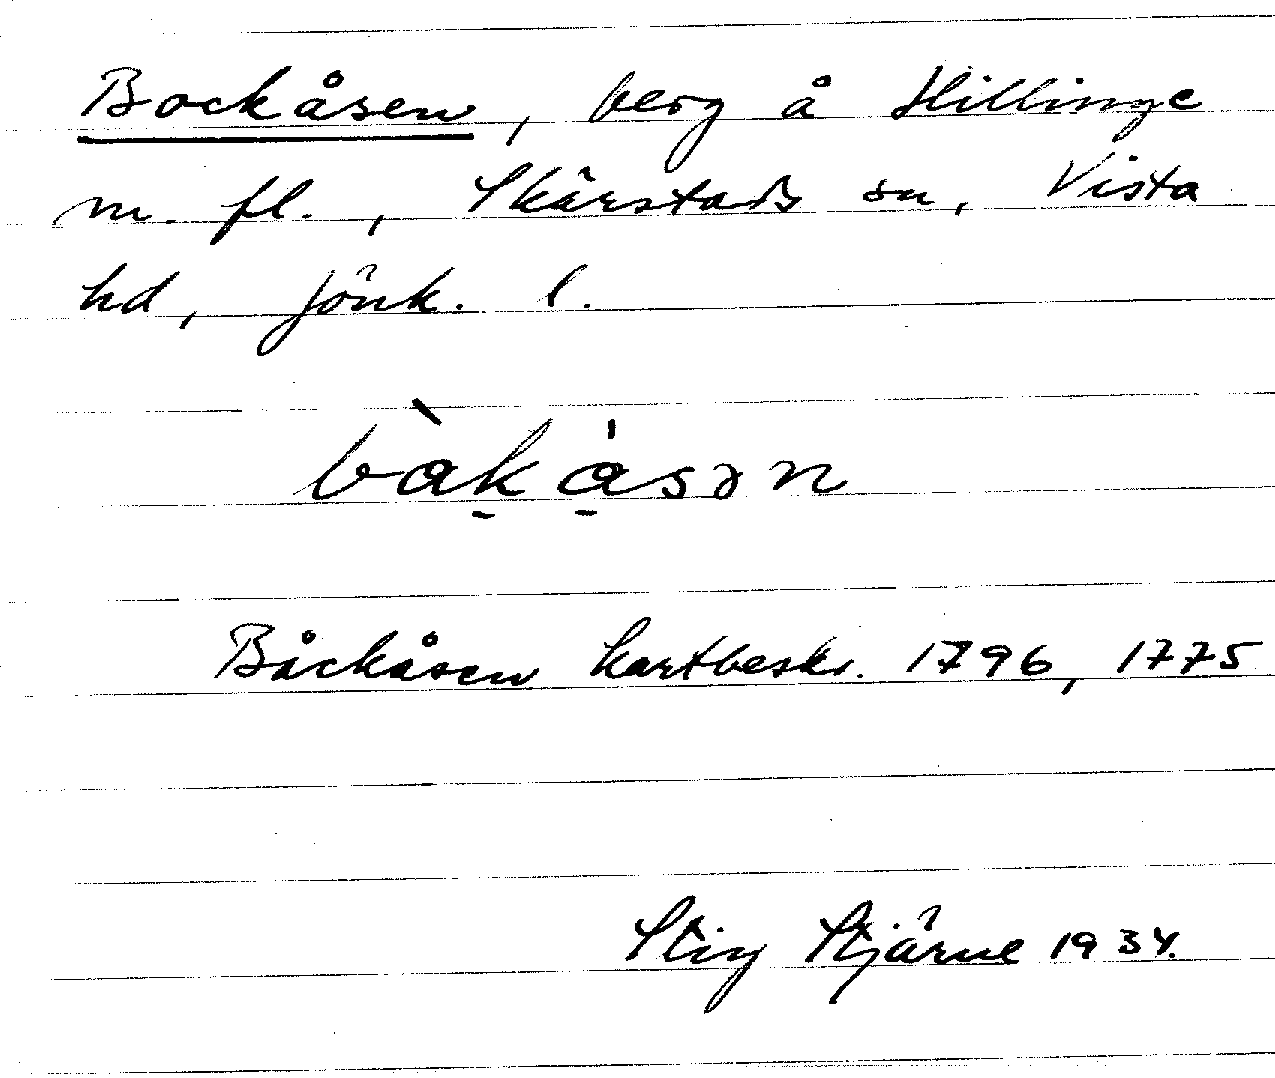 Bockåsen, berg å Hillinge
m. fl., Skärstads sn, Vista
hd, Jönk. l.
bàk̠å̠sən
Båckåsen kartbeskr. 1796, 1775
Stig Stjärne 1934.